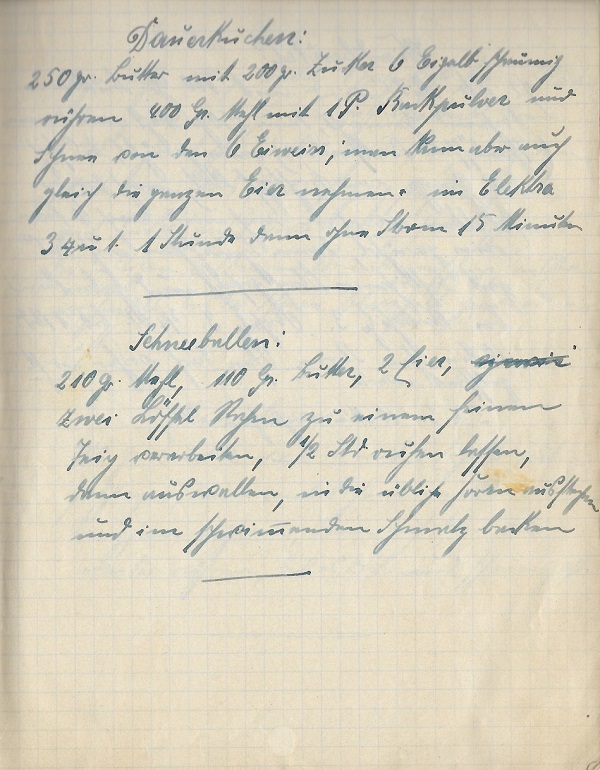 Dauerkuchen:
250 gr. Butter mit 200 gr. Zucker 6 Eigelb schaumig
rühren 400 Gr. Mehl mit 1 P. Backpulver und
Schnee von den 6 Eiweiss, man kann aber auch
gleich die ganzen Eier nehmen. im Elektra
3 4 u 1. 1 Stunde dann ohne Strom 15 Minuten
Schneeballen:
210 gr. Mehl, 110 Gr. Butter, 2 Eier,
zwei Löffel Rahm zu einem feinen
Teig verarbeiten, 1/2 Std ruhen lassen,
dann auswallen, in die übliche Form ausstechen
und im schwimmenden Schmalz backen